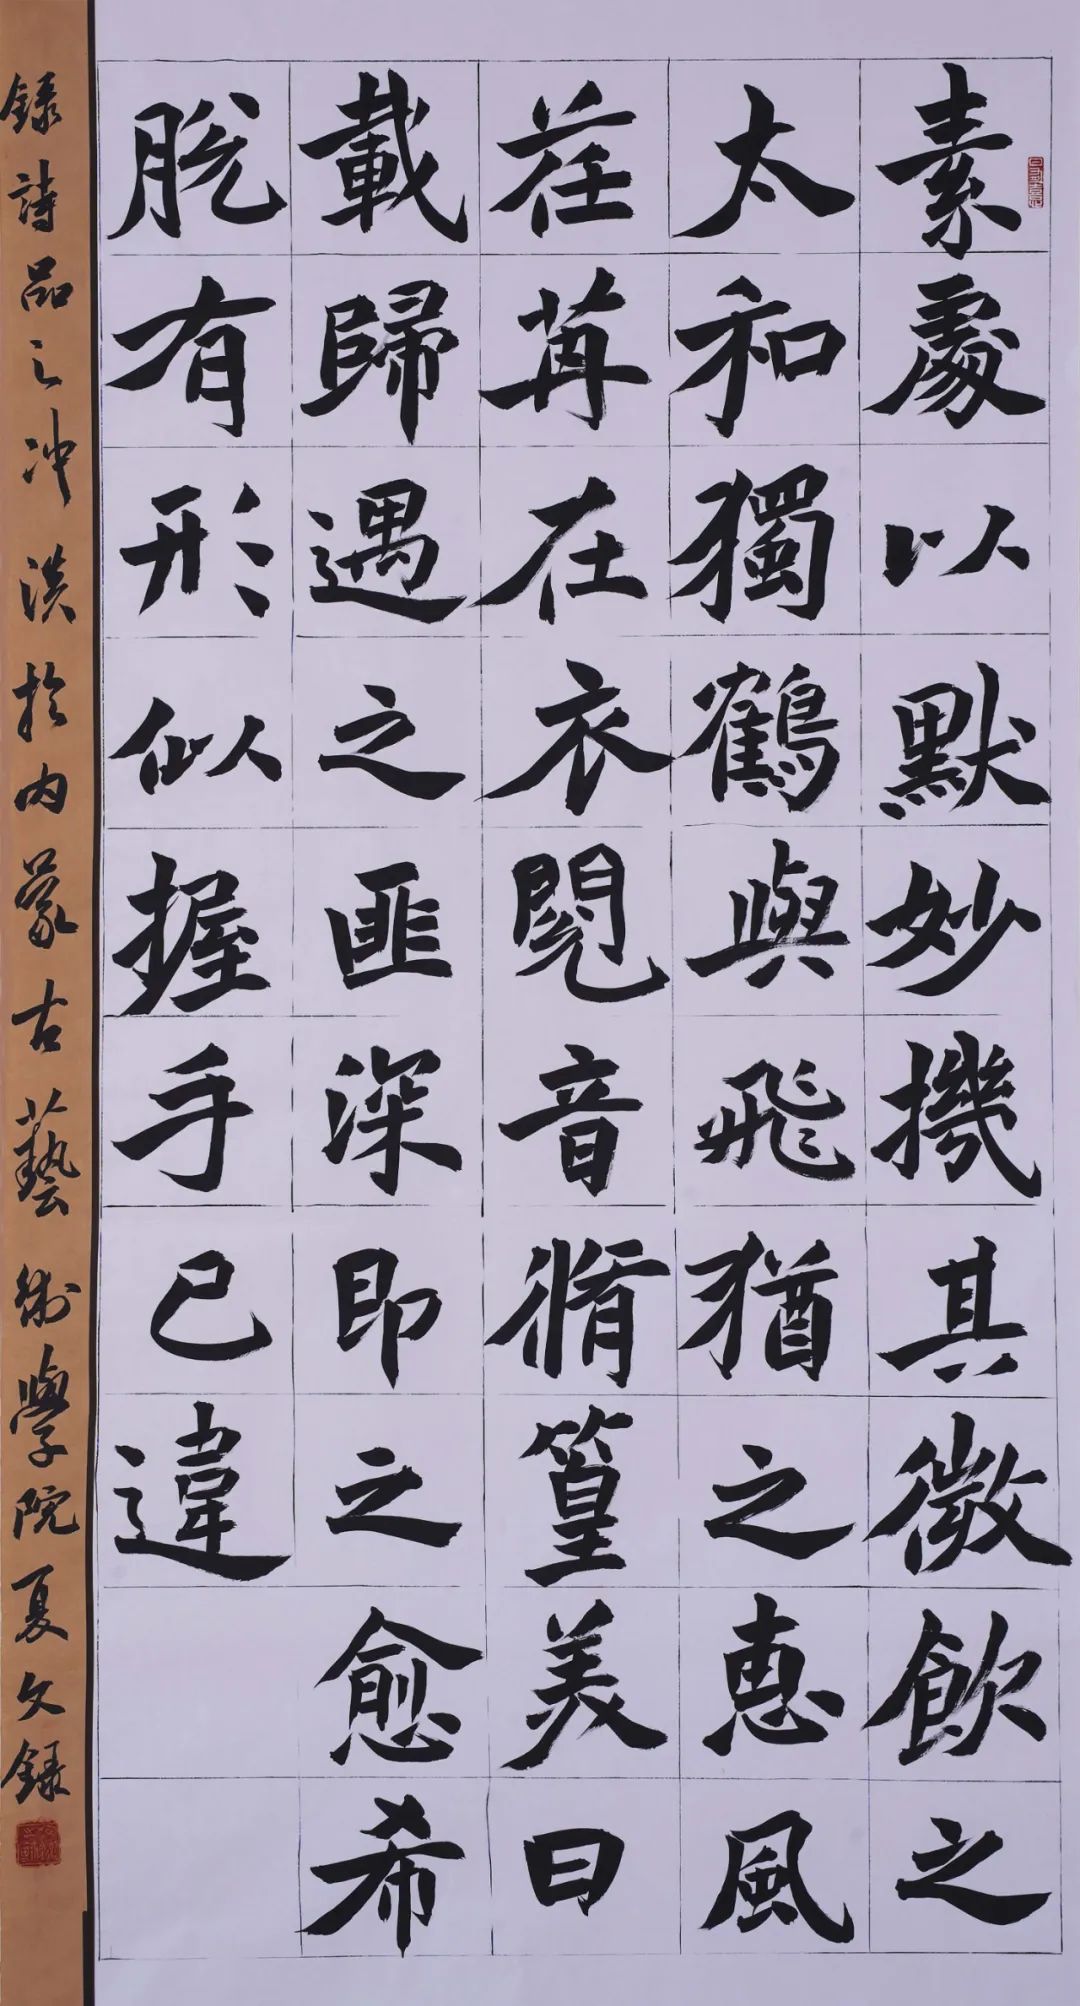 素處以默妙機其微飲之
太和獨鶴與飛猶之惠風
荏苒在衣閱音脩篁美曰
載歸遇之匪深即之愈希
脫有形似握手已違
錄詩品之冲淡於内蒙古藝術學院夏文錄